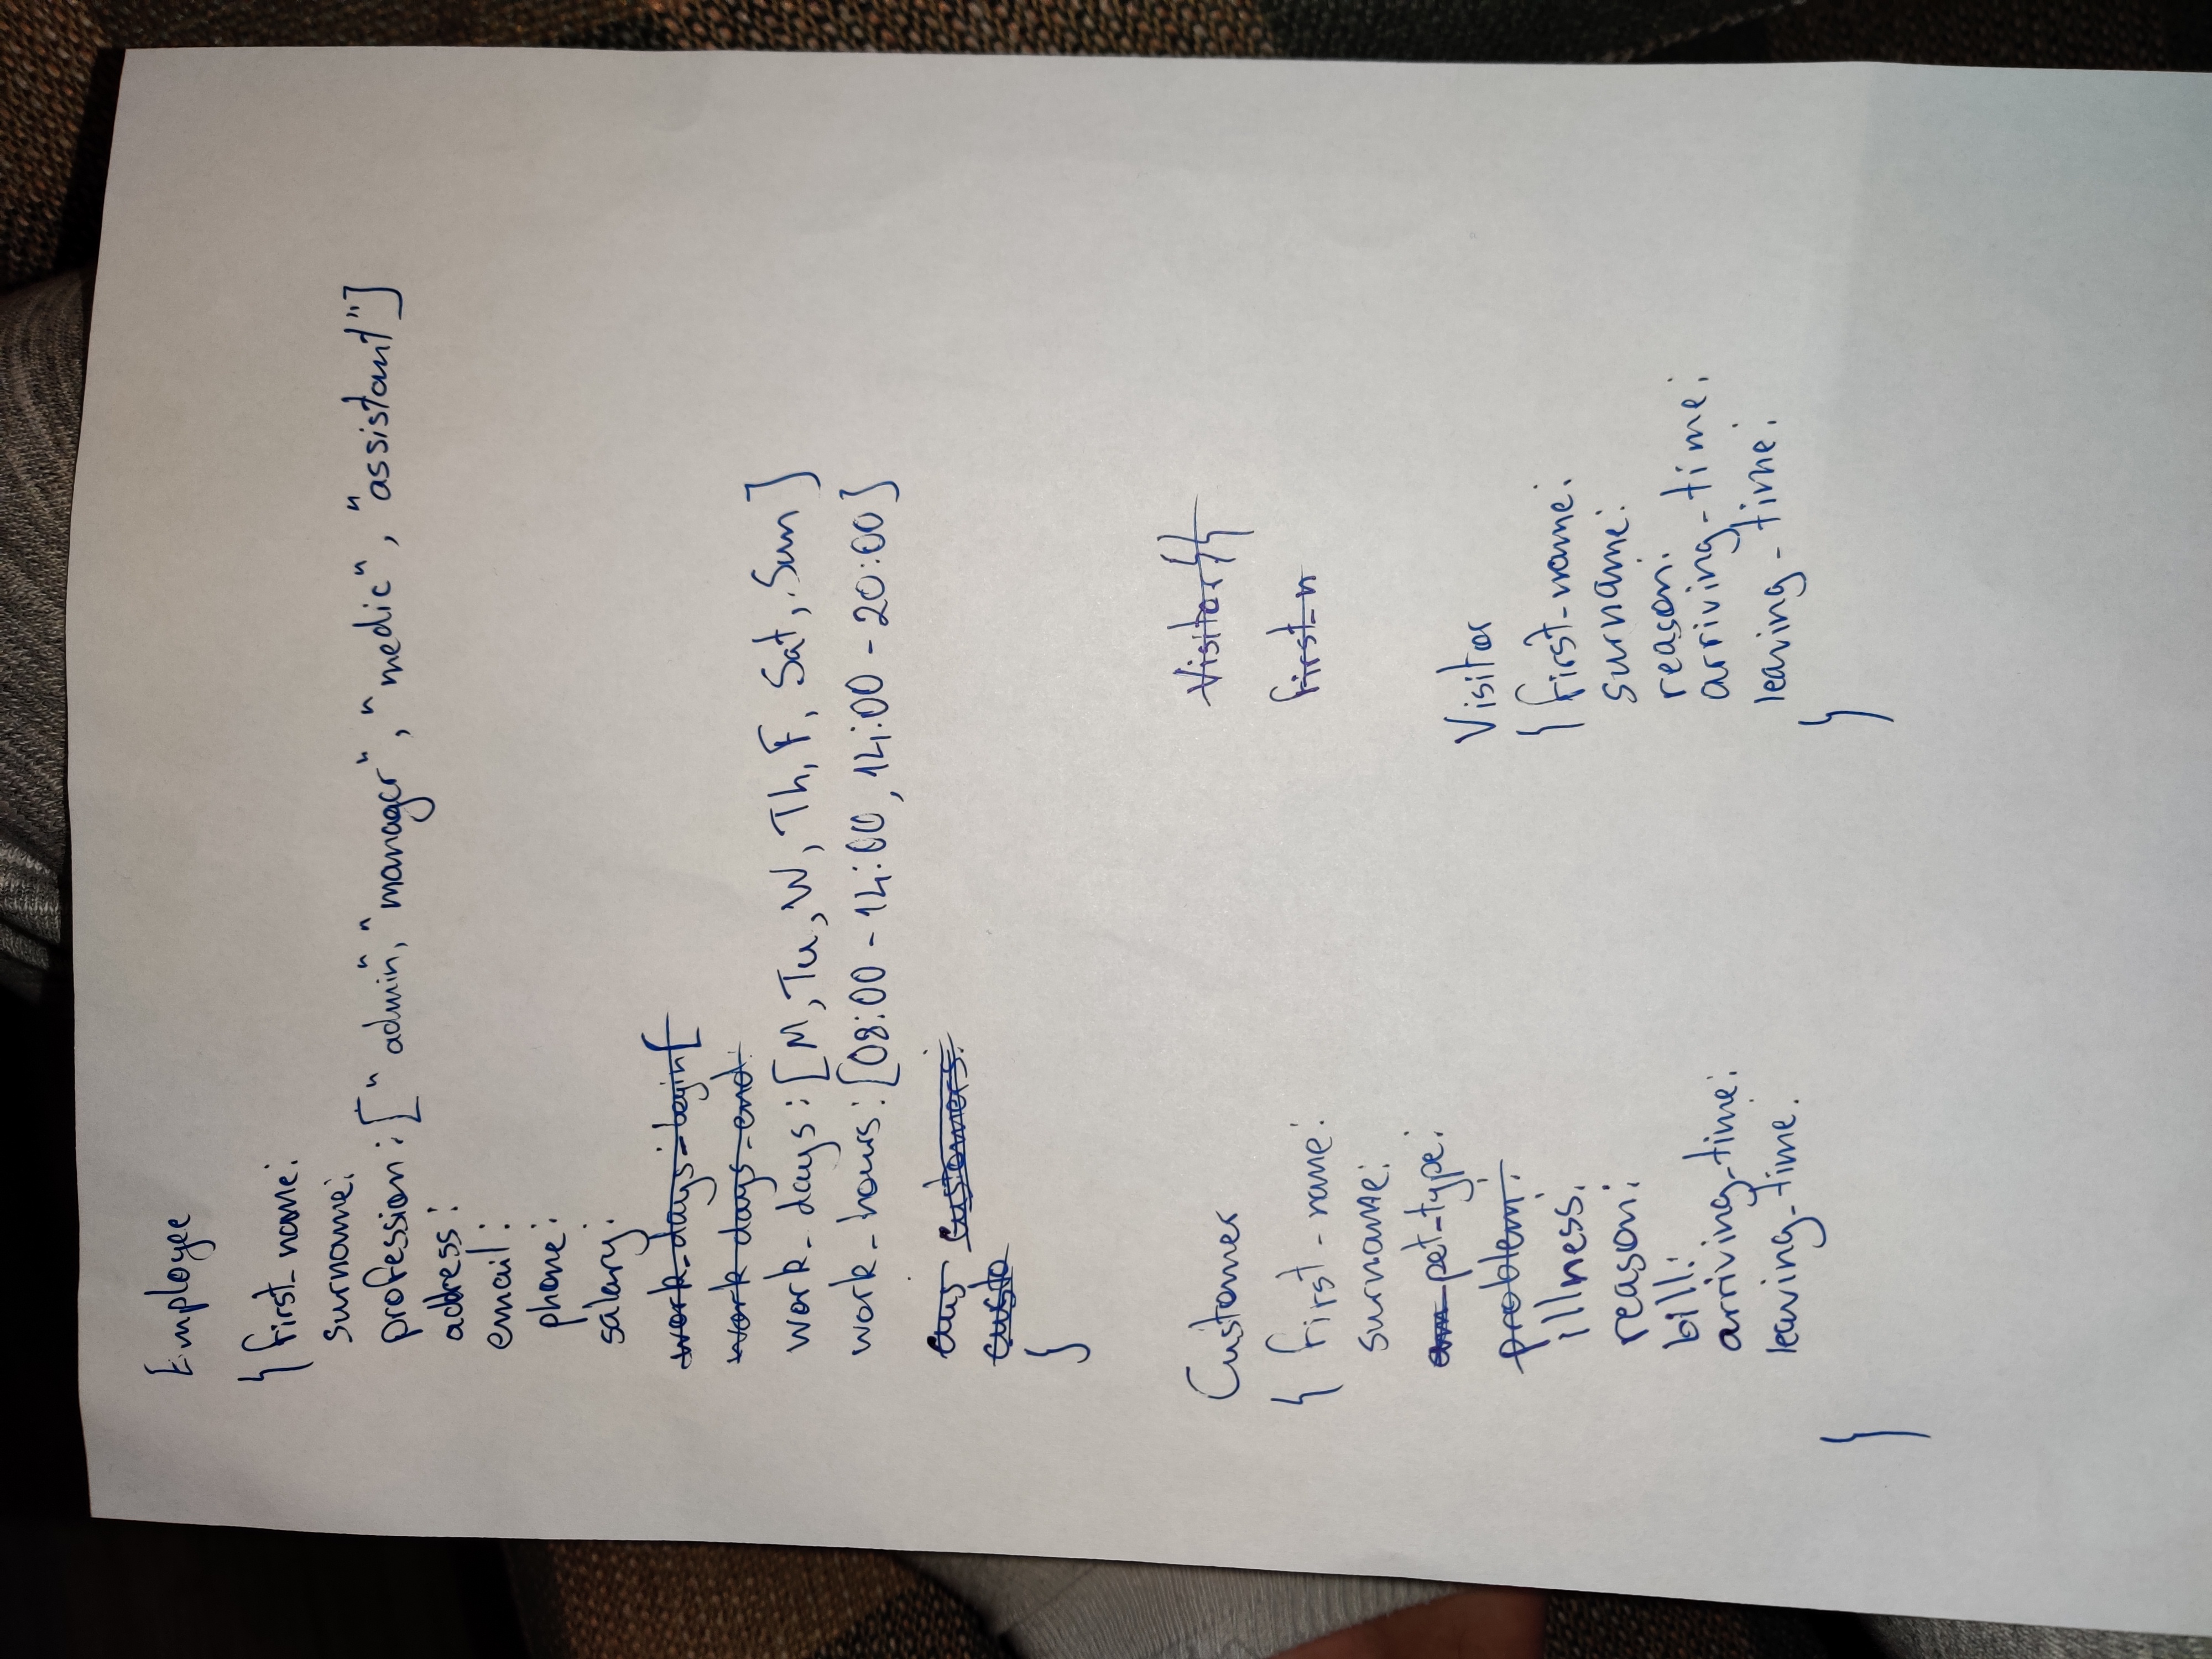 Employee
{ first_name:
surname:
profession: ["admin", "manager", "medic", "assistant"]
address:
email:
phone:
salary:
work_days_begin[
work days_end:
work_days: [M, Tu, W, Th, F, Sat, Sun]
work_hours: [08:00 - 14:00, 14:00 - 20:00]
cus customers:
custo
}
Customer
{ first_name:
surname:
am pet_type:
problem:
illness:
reason:
bill:
arriving_time:
leaving_time:
}
Visitor {{
first_n
Visitor
{ first_name:
surname:
reason:
arriving_time:
leaving_time:
}